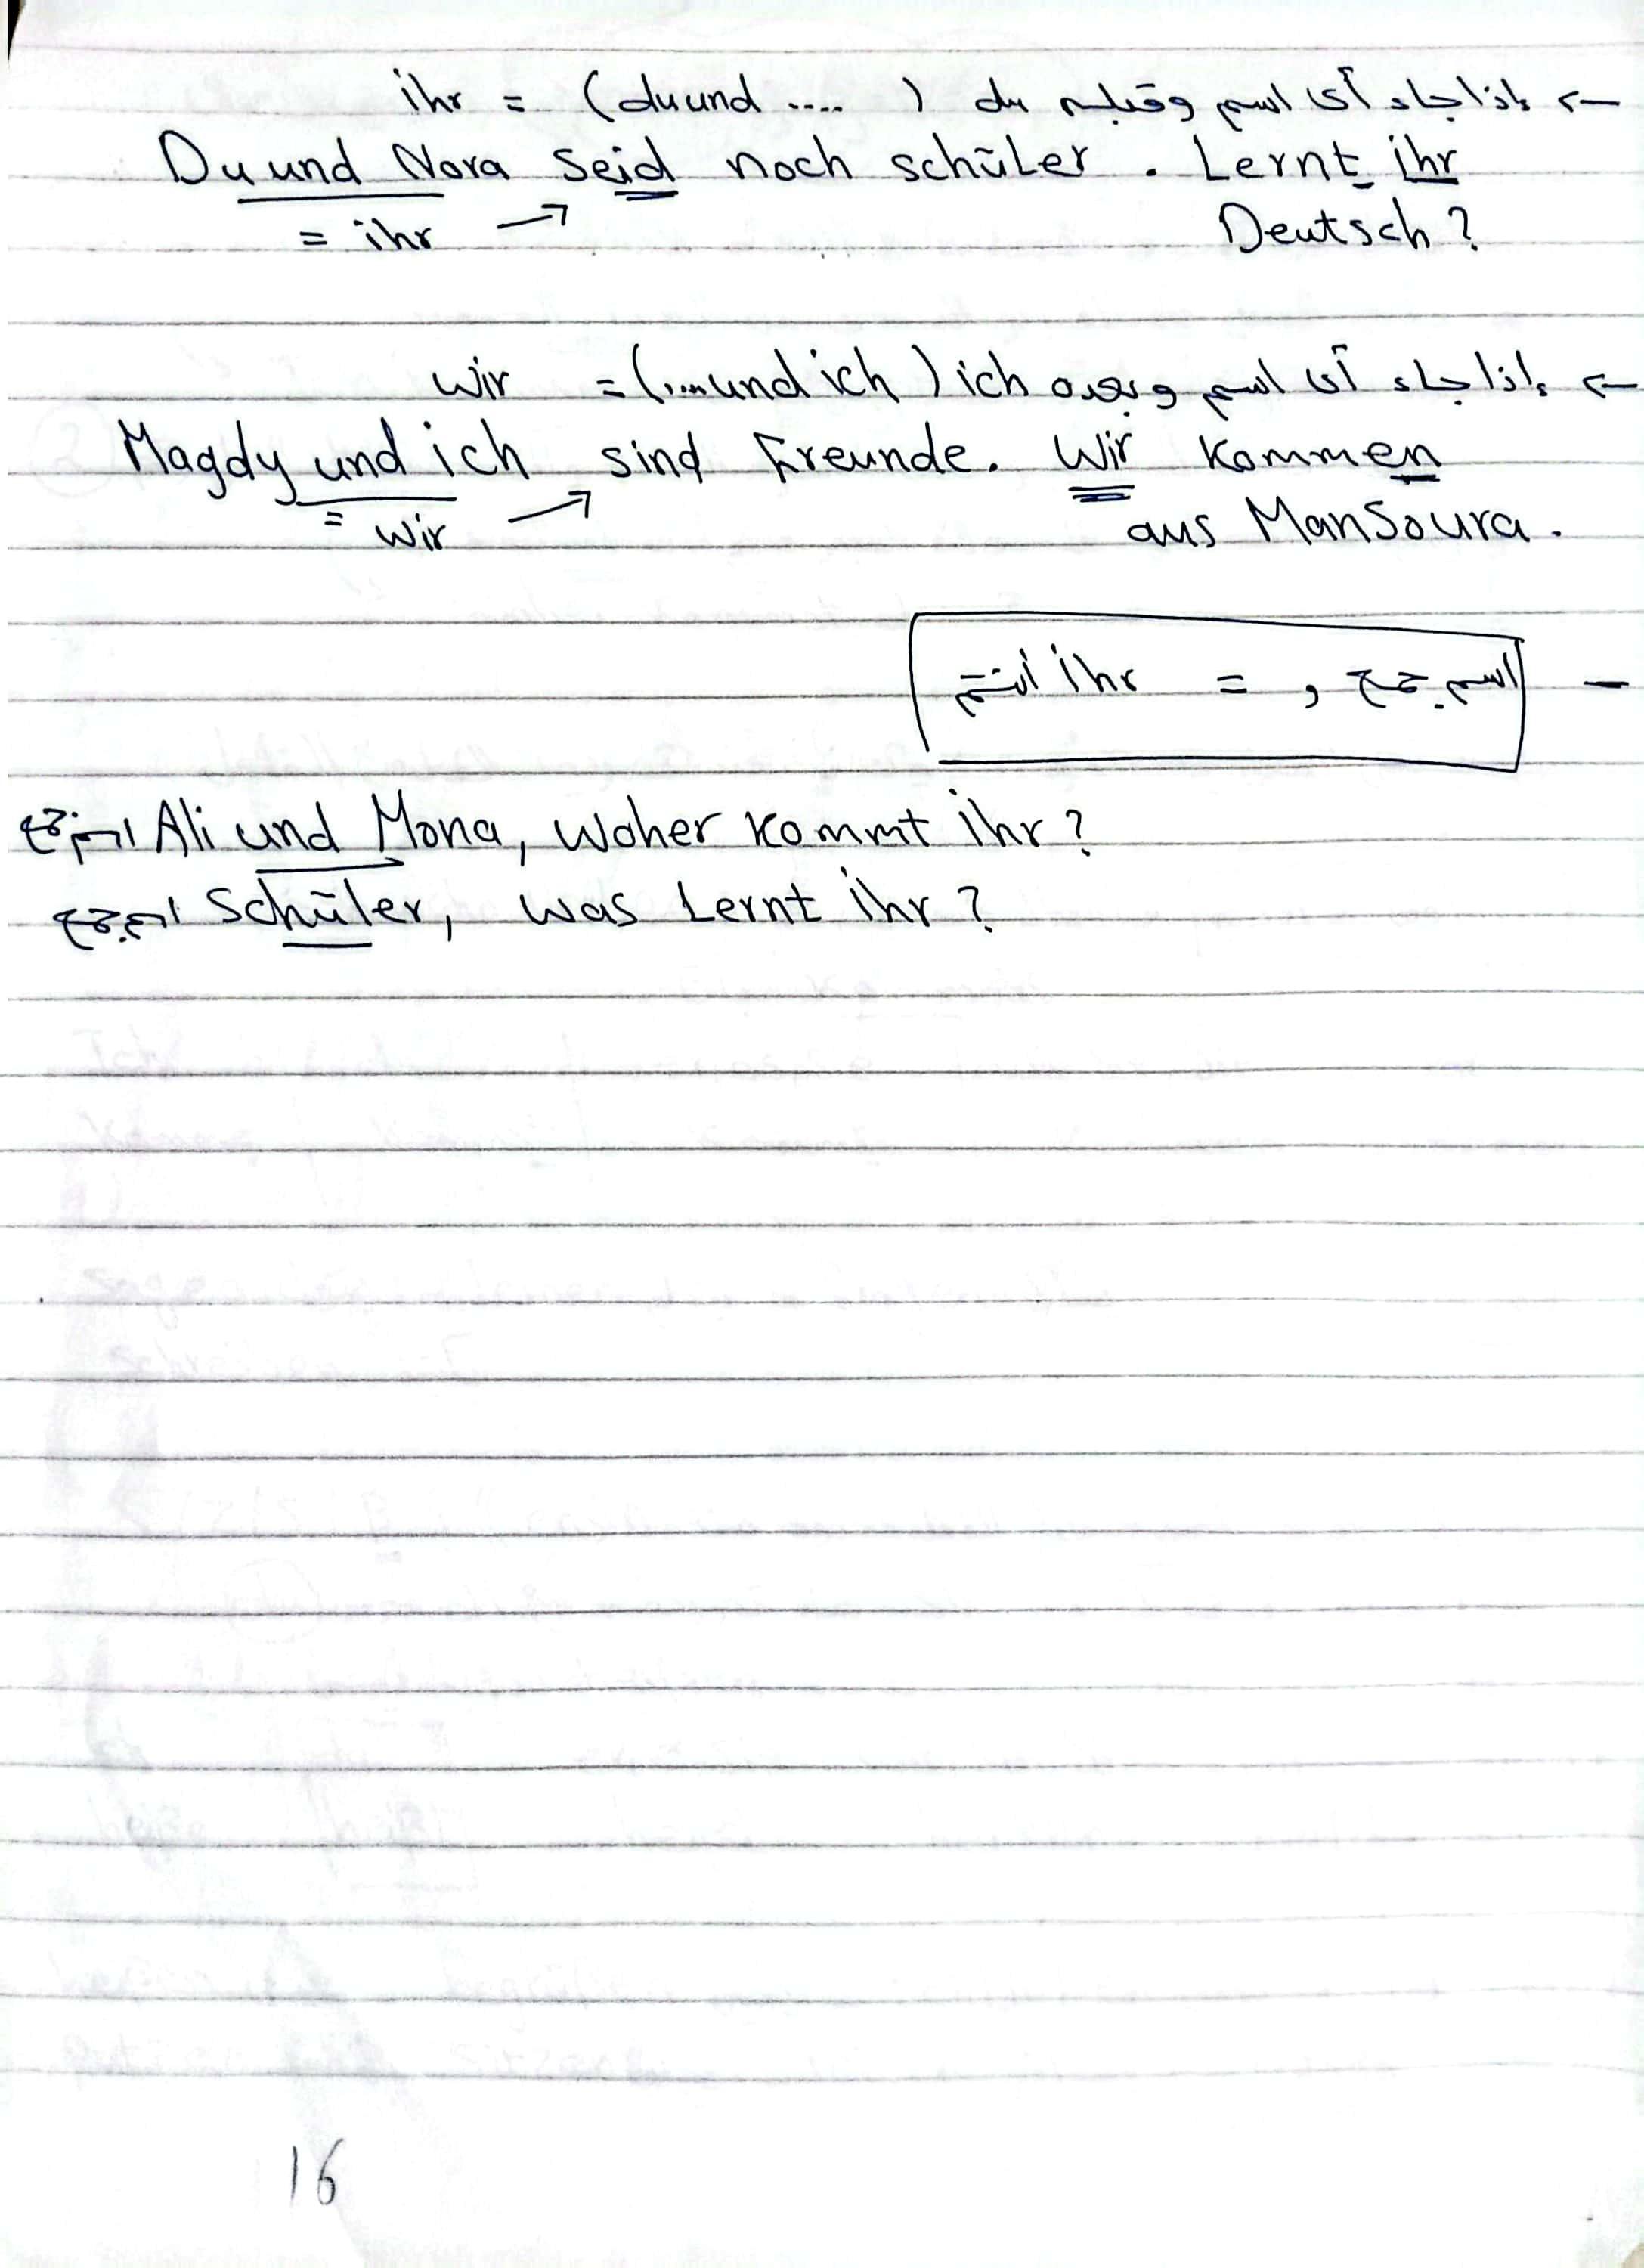 ← إذا جاء أى اسم وقبله du ( du und .... ) = ihr
Du und Nora seid noch schüler . Lernt ihr
= ihr → Deutsch ?
← إذا جاء أى اسم وبعده ich ( .... und ich ) = wir
Magdy und ich sind Freunde. Wir kommen
= wir → aus Mansoura .
- اسم جمع , = ihr أنتم
اسم جمع Ali und Mona, woher kommt ihr ?
اسم جمع Schüler, was Lernt ihr ?
16